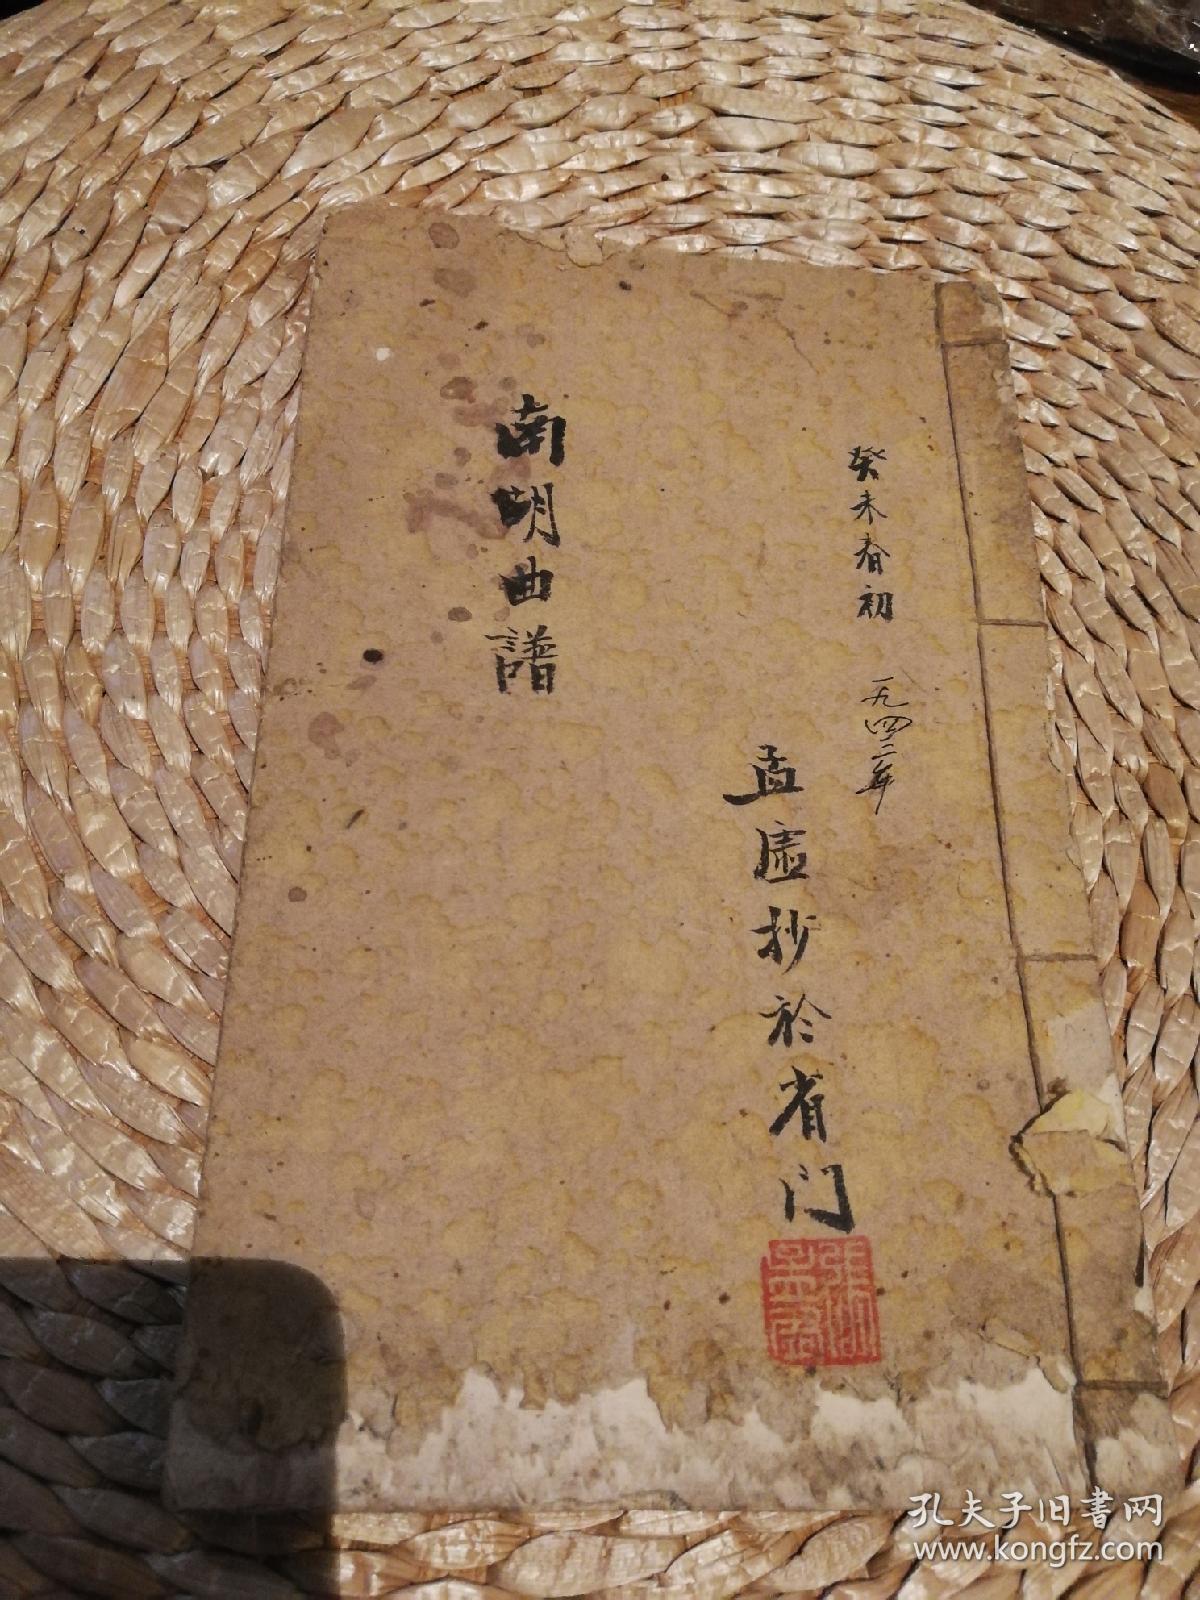 癸未春初 一九四二年
孟虚抄於省门
南胡曲譜
孔夫子旧書网
www.kongfz.com